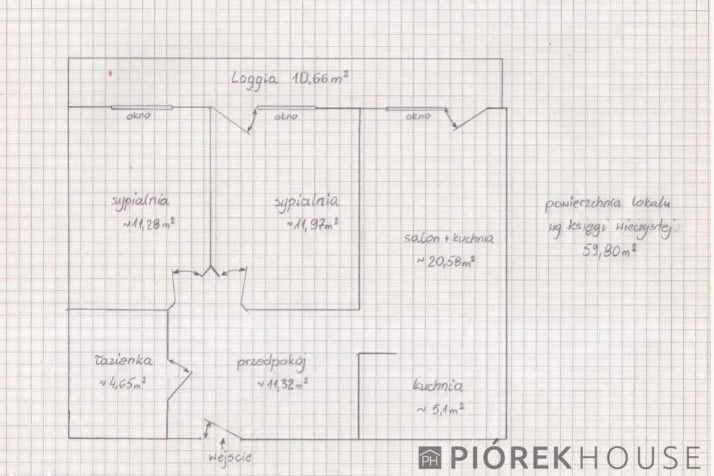 Loggia 10,66m²
okno
okno
okno
sypialnia
~11,28m²
sypialnia
~11,97m²
salon + kuchnia
~20,58m²
powierzchnia lokalu
wg księgi wieczystej
59,80m²
łazienka
~4,65m²
przedpokój
~11,32m²
kuchnia
~5,1m²
wejście
PH PIÓREKHOUSE